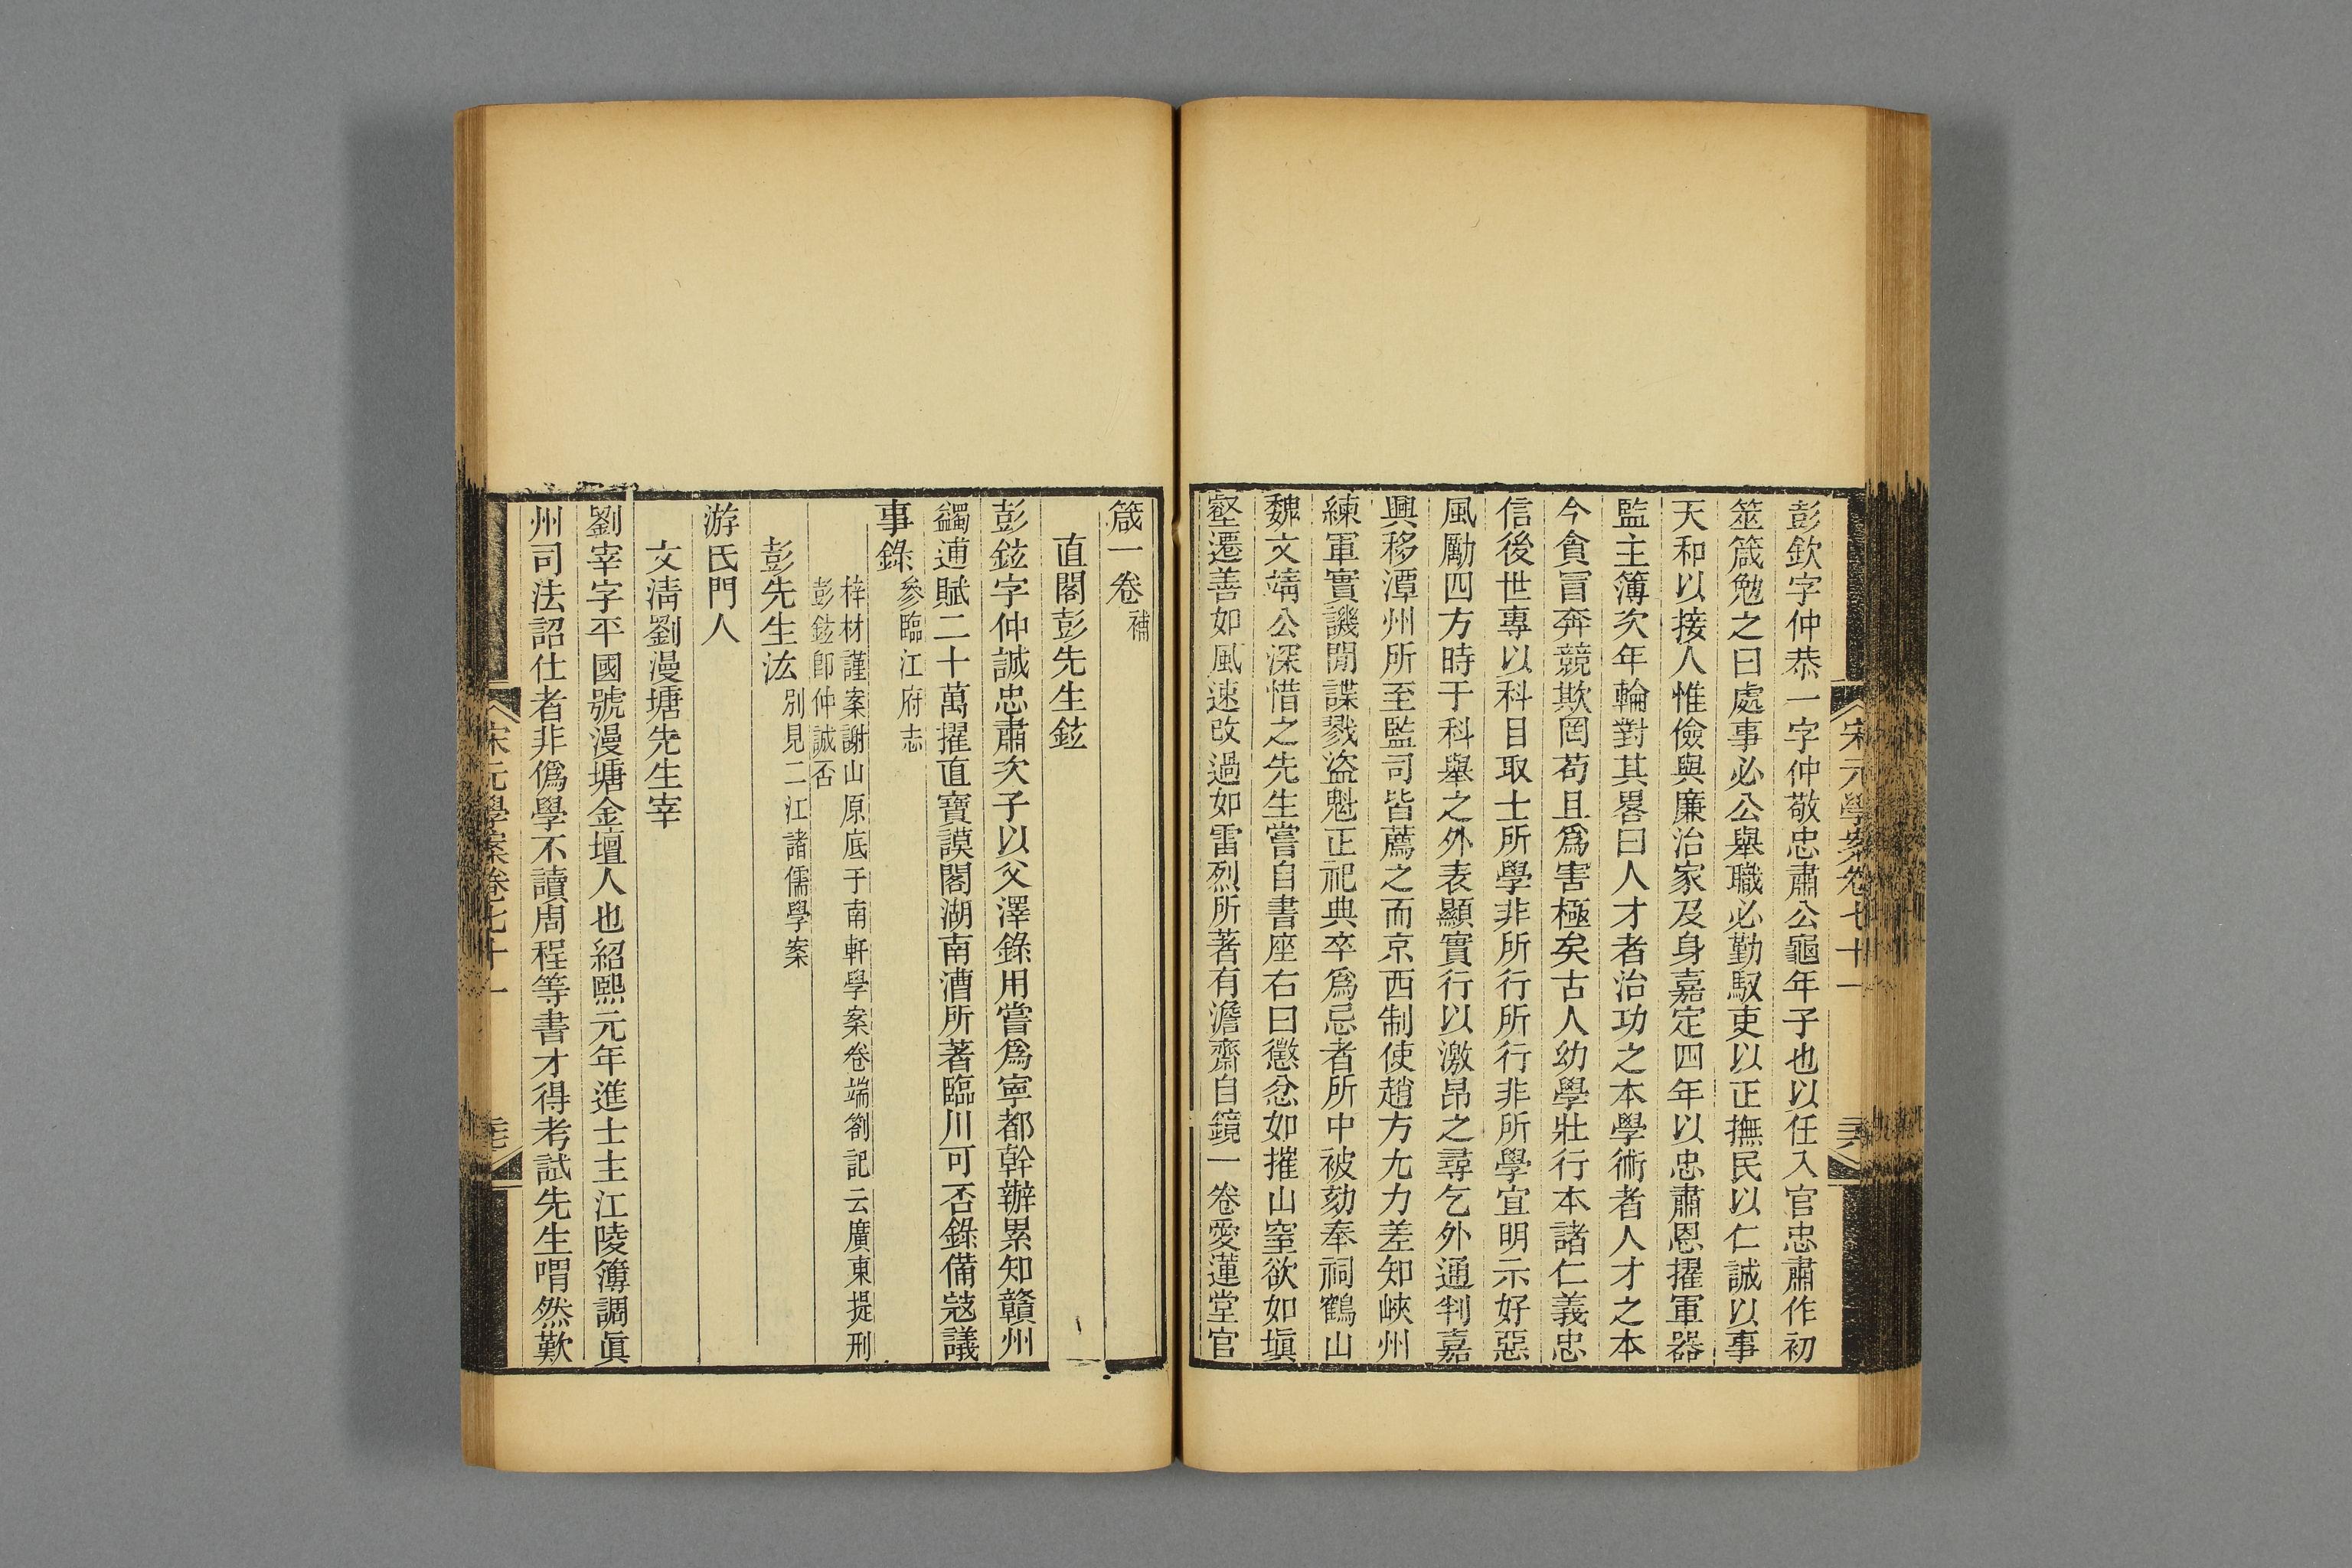 宋元學案卷七十一
彭欽字仲恭一字仲敬忠肅公龜年子也以任入官忠肅作初
筮箴勉之曰處事必公舉職必勤馭吏以正撫民以仁誠以事
天和以接人惟儉與廉治家及身嘉定四年以忠肅恩擢軍器
監主簿次年輪對其畧曰人才者治功之本學術者人才之本
今貪冒奔競欺罔苟且爲害極矣古人幼學壯行本諸仁義忠
信後世專以科目取士所學非所行所行非所學宜明示好惡
風勵四方時于科舉之外表顯實行以激昂之尋乞外通判嘉
興移潭州所至監司皆薦之而京西制使趙方尤力差知峽州
練軍實譏閒諜戮盜魁正祀典卒爲忌者所中被劾奉祠鶴山
魏文靖公深惜之先生嘗自書座右曰懲忿如摧山窒欲如塡
壑遷善如風速改過如雷烈所著有澹齋自鏡一卷愛蓮堂官
箴一卷補
直閣彭先生鉉
彭鉉字仲誠忠肅次子以父澤錄用嘗爲寧都幹辦累知贛州
蠲逋賦二十萬擢直寶謨閣湖南漕所著臨川可否錄備寇議
事錄參臨江府志
梓材謹案謝山原底于南軒學案卷端劄記云廣東提刑
彭鉉卽仲誠否
彭先生汯別見二江諸儒學案
游氏門人
文淸劉漫塘先生宰
劉宰字平國號漫塘金壇人也紹熙元年進士主江陵簿調眞
州司法詔仕者非僞學不讀周程等書才得考試先生喟然歎
宋元學案卷七十一